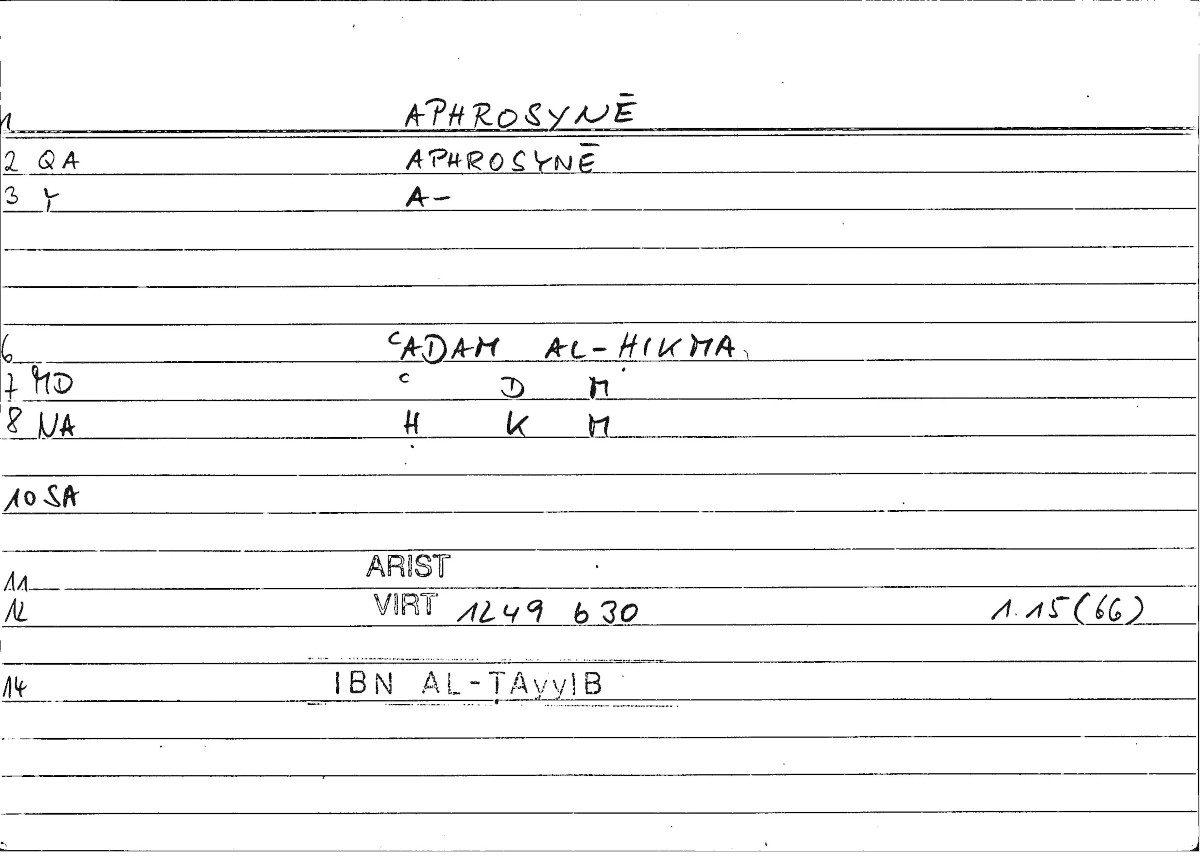 1 APHROSYNĒ
2 QA APHROSYNĒ
3 Y A-
6 ʿADAM AL-ḤIKMA
7 MD ʿ D M
8 NA Ḥ K M
10 SA
11 ARIST
12 VIRT 1249 b 30 1.15(66)
14 IBN AL-ṬAyyIB